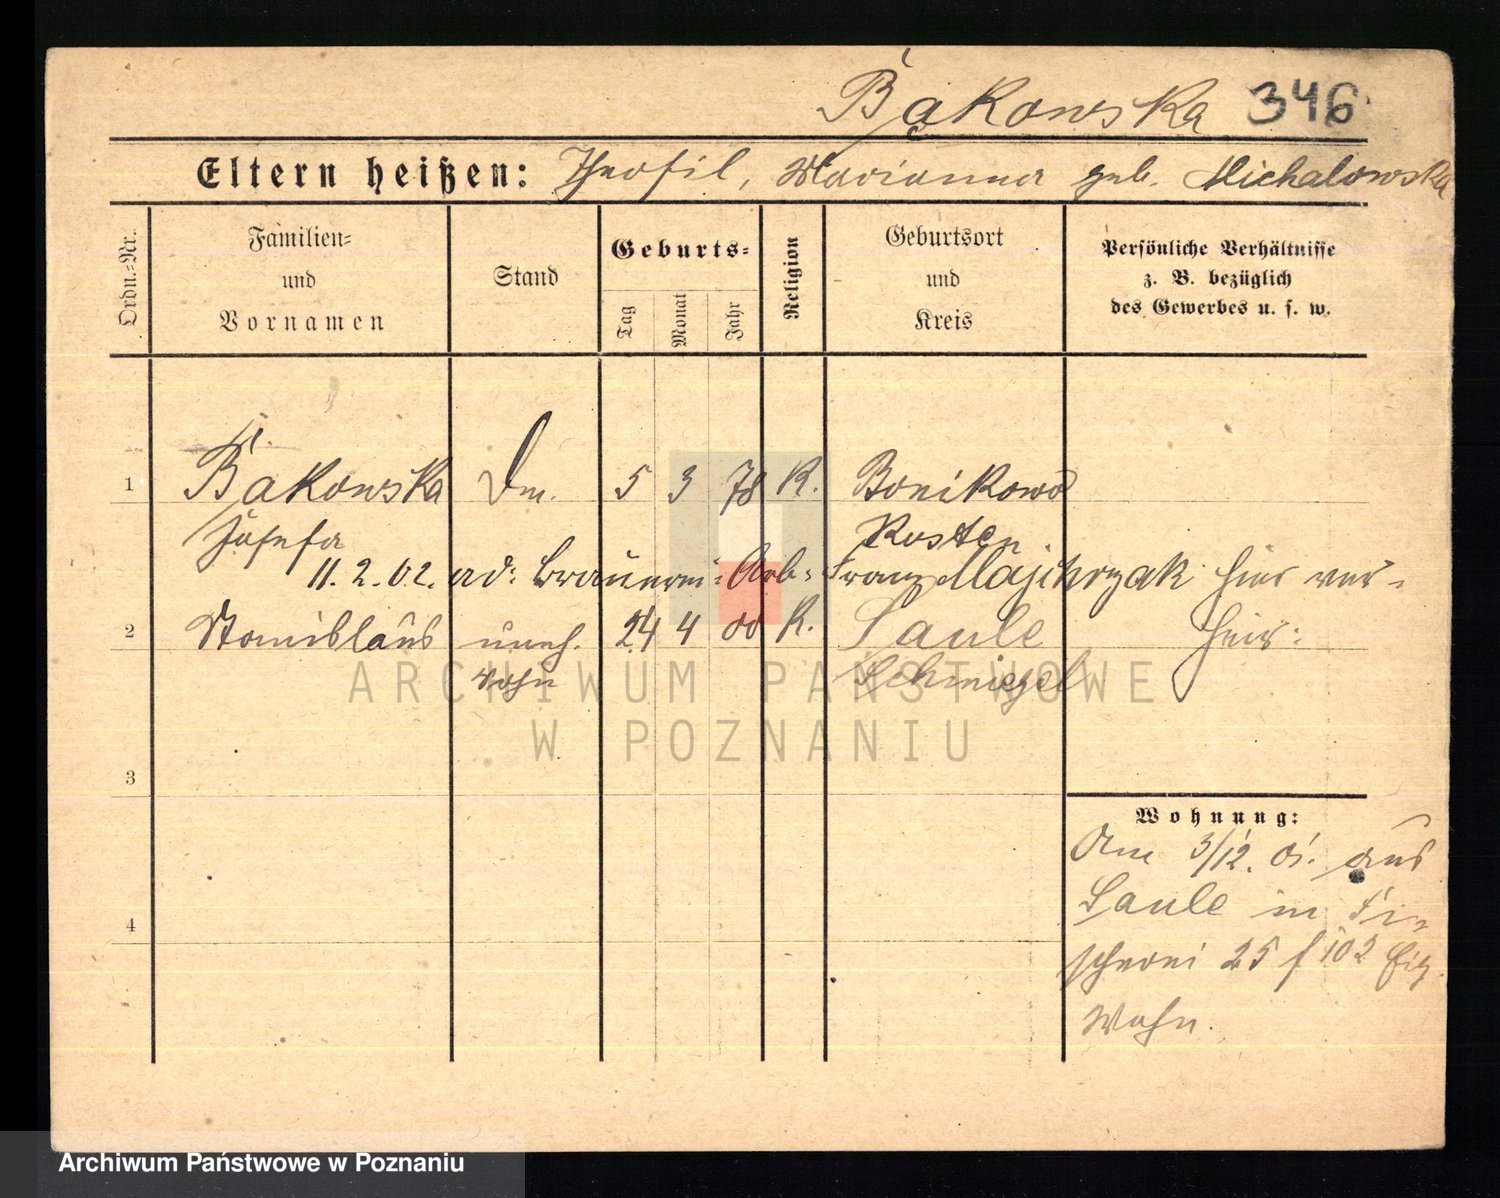 Bąkowska 346
Eltern heißen: Theofil, Marianna geb. Michalowska
Ordn.-Nr.
Familien-
und
Vornamen
Stand
Geburts-
Tag
Monat
Jahr
Religion
Geburtsort
und
Kreis
Persönliche Verhältnisse
z. B. bezüglich
des Gewerbes u. s. w.
1 Bąkowska Dm. 5 3 78 K. Bonikowo
Josefa Kosten
11.2.02. ad: Brauerei-Arb. Franz Majchrzak hier ver-
2 Stanislaus uneh. 24 4 00 K. Saule heir:
Sohn Schmiegel
ARCHIWUM PAŃSTWOWE
W POZNANIU
3
4
Wohnung:
Am 3/12. 01. aus
Saule in Fi-
scherei 25
Wohn.
Archiwum Państwowe w Poznaniu